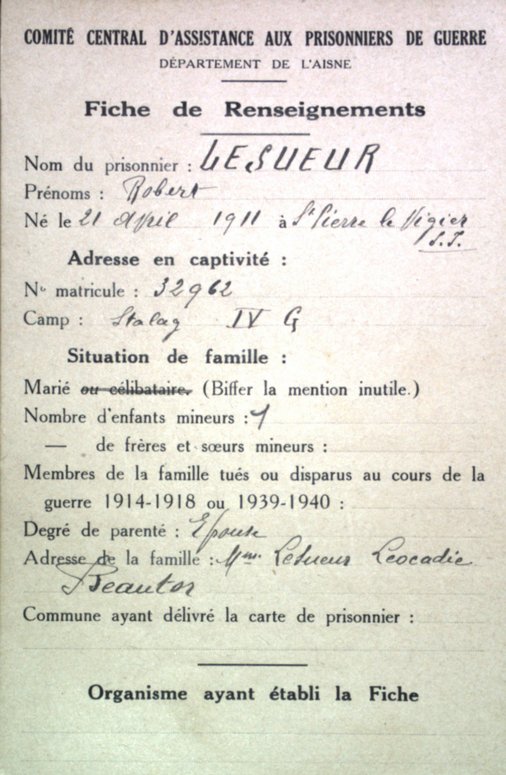 COMITÉ CENTRAL D'ASSISTANCE AUX PRISONNIERS DE GUERRE
DÉPARTEMENT DE L'AISNE
Fiche de Renseignements
Nom du prisonnier : LESUEUR
Prénoms : Robert
Né le 21 April 1911 à St Pierre le Vigier
S.I.
Adresse en captivité :
No matricule : 32962
Camp : Stalag IV G
Situation de famille :
Marié ou célibataire. (Biffer la mention inutile.)
Nombre d'enfants mineurs : 1
— de frères et sœurs mineurs :
Membres de la famille tués ou disparus au cours de la
guerre 1914-1918 ou 1939-1940 :
Degré de parenté : Epouse
Adresse de la famille : Mme Lesueur Leocadie
Beautor
Commune ayant délivré la carte de prisonnier :
Organisme ayant établi la Fiche